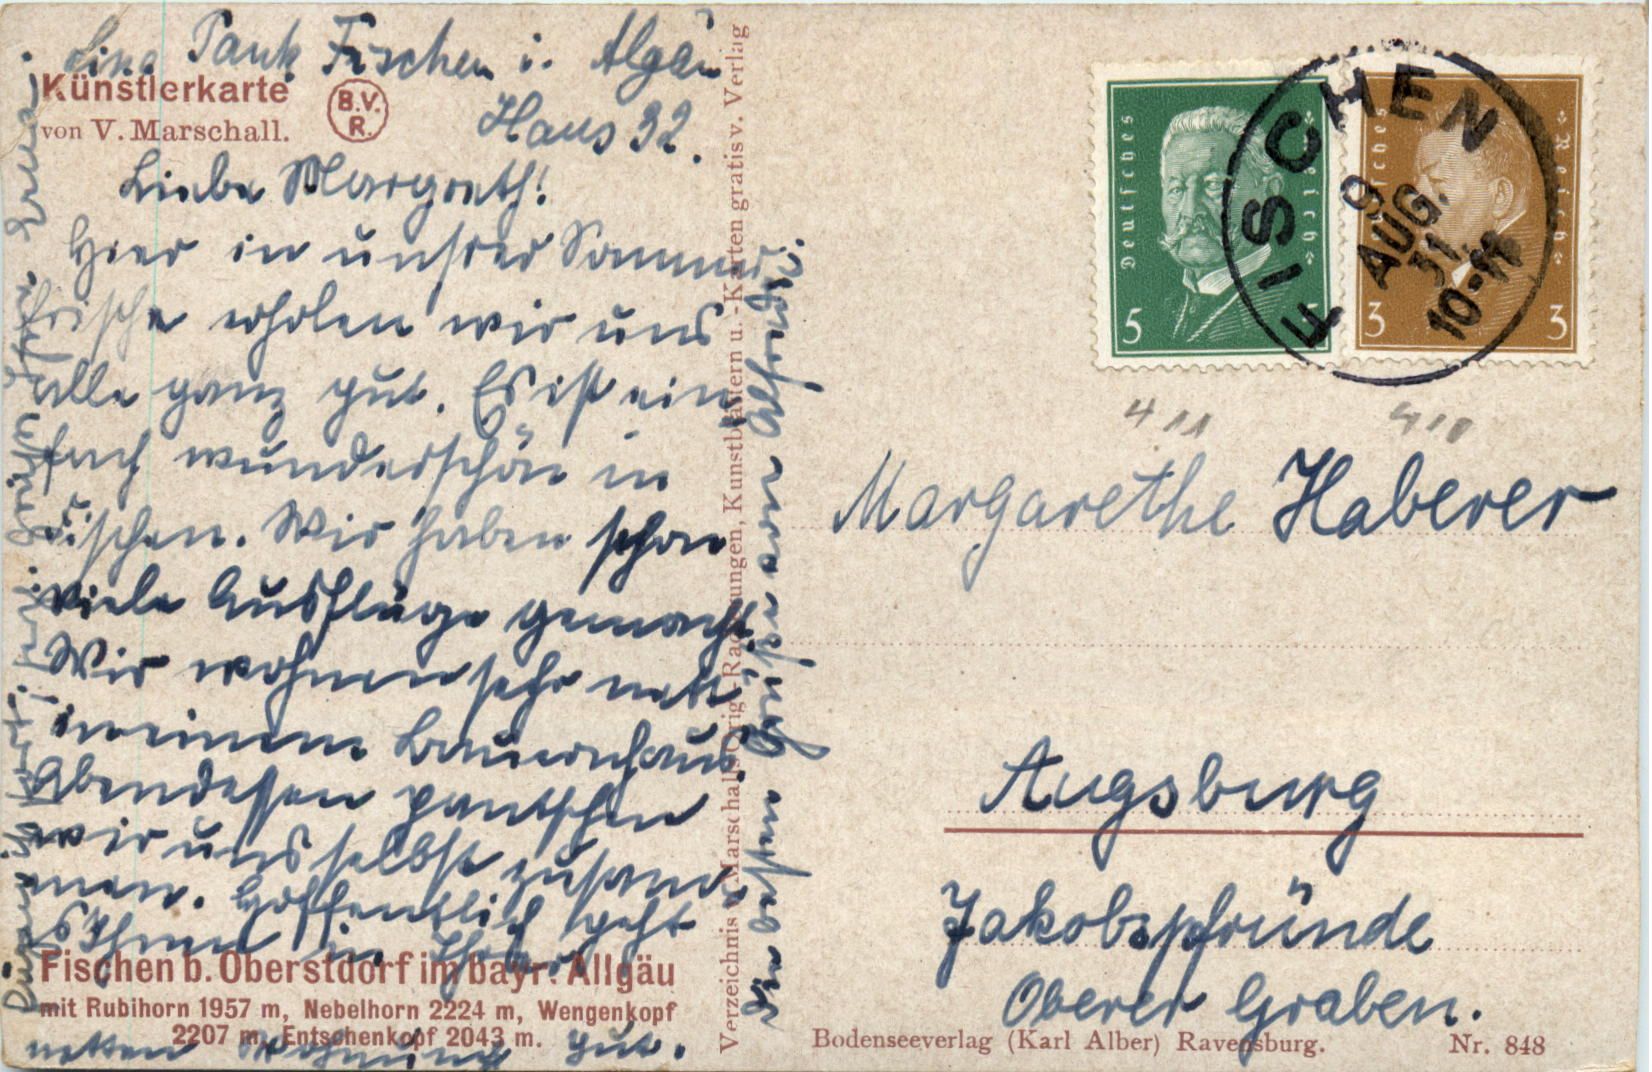 Lina Pank Fischen i. Algäu
Haus 32.
Künstlerkarte
von V. Marschall.
B.V.
R.
Liebe Margreth!
Hier in unsrer Sommer
frische erholen wir uns
alle ganz gut. Es ist ein
fach wunderschön in
Fischen. Wir haben schon
viele Ausflüge gemacht.
Wir wohnen sehr nett
in einem Bauernhaus.
Abendessen pantschen
wir uns selbst zusam
men. Hoffentlich geht
es Ihnen in Ihrer
netten Wohnung gut.
Fischen b. Oberstdorf im bayr. Allgäu
mit Rubihorn 1957 m, Nebelhorn 2224 m, Wengenkopf
2207 m, Entschenkopf 2043 m.
Verzeichnis v. Marschalls Orig.-Radierungen, Kunstblättern u. -Karten gratis v. Verlag
Die besten Grüße von Alfred u.
Deutsches Reich
5
Deutsches Reich
3 3
FISCHEN
9
AUG.
31
10-11
411
410
Margarethe Haberer
Augsburg
Jakobspfründe
Oberer Graben.
Bodenseeverlag (Karl Alber) Ravensburg.
Nr. 848